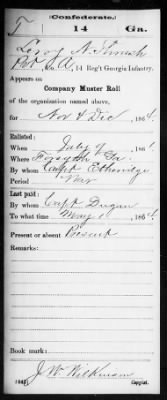 (Confederate.)
T 14 Ga.
Leroy N.
Pvt Co. A, 14 Reg't Georgia Infantry.
Appears on
Company Muster Roll
of the organization named above,
for Nov & Dec, 1864.
Enlisted:
When July 9, 1861
Where Forsyth Ga
By whom Capt Etheridge
Period War
Last paid:
By whom Capt Dugan
To what time May 1, 1864.
Present or absent Present
Remarks:
Book mark:
J. W. Wilkinson
(642) Copyist.